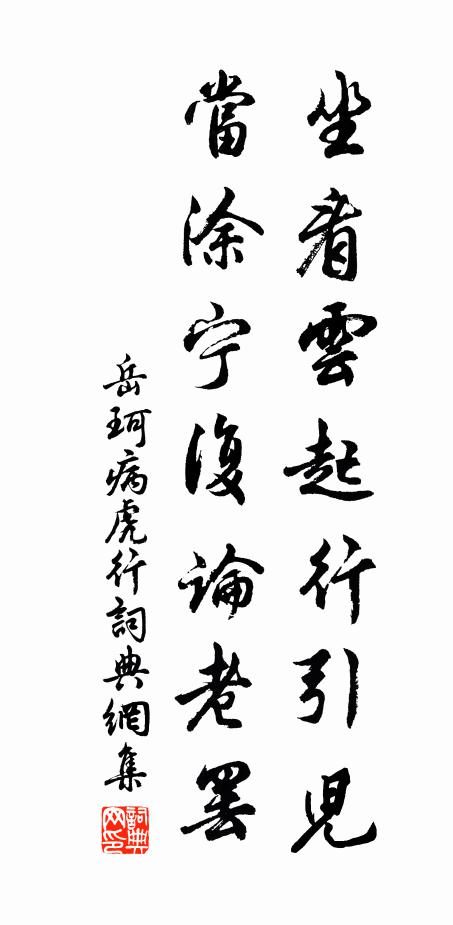 坐看雲起行引兒
當涂宁復論老罢
岳珂病虎行詞典網集
詞典网印